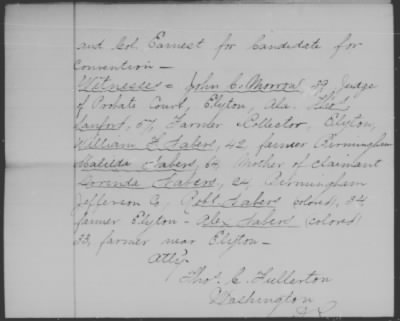 and Col. Earnest for Candidate for
Convention —
Witnesses = John C. Morrow, 59, Judge
of Probate Court, Elyton, Ala. Thos
Sanfort, 57, Farmer & Collector, Elyton,
William F. Nabers, 42, farmer Birmingham
Matilda Nabers, 64, Mother of Claimant
Dorinda Nabers, 24, Birmingham
Jefferson Co, Robt Nabers (colored), 34
farmer Elyton — Alex Nabers (colored)
33, farmer near Elyton —
Atty.
Thos. C. Fullerton
Washington
D.C.